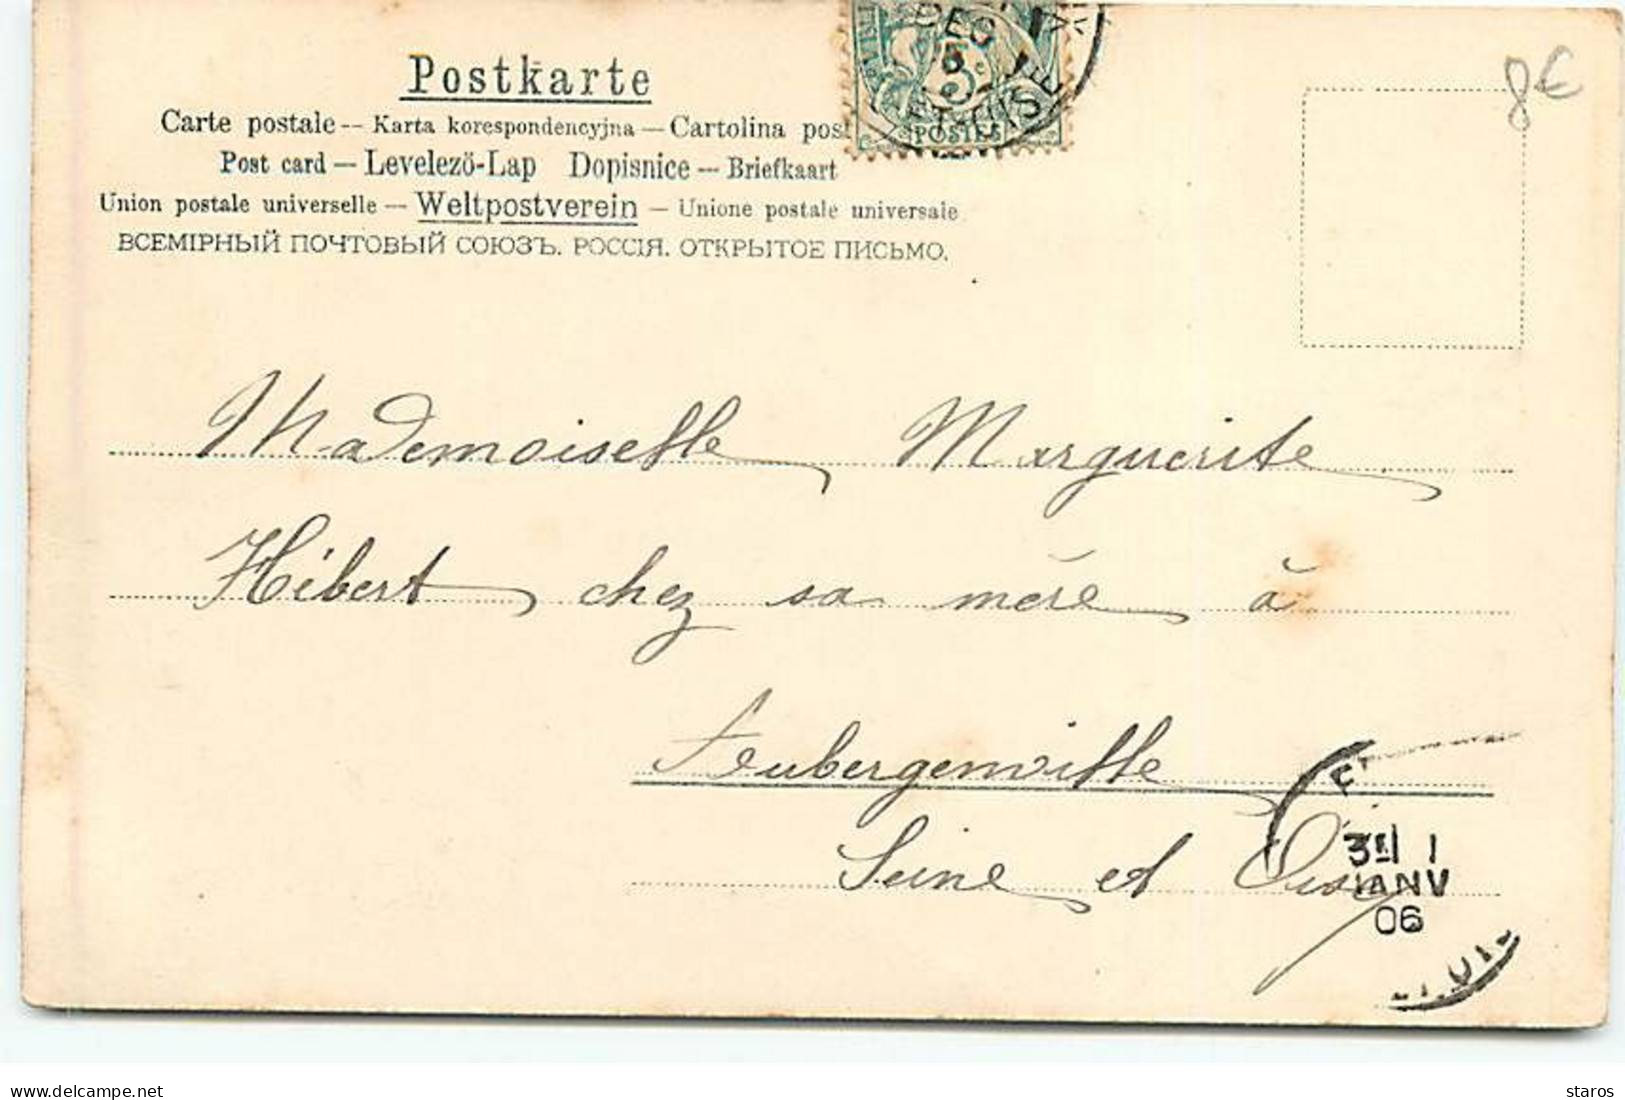 Postkarte
Carte postale -- Karta korespondencyjna -- Cartolina post
Post card -- Levelező-Lap Dopisnice -- Briefkaart
Union postale universelle -- Weltpostverein -- Unione postale universale
ВСЕМІРНЫЙ ПОЧТОВЫЙ СОЮЗЪ. РОССІЯ. ОТКРЫТОЕ ПИСЬМО.
DEC
5c
POSTES
ET-OISE
8€
Mademoiselle Marguerite
Hébert chez sa mère à
Aubergenville
Seine et Oise
3E 1
JANV
06
delcampe.net
staros